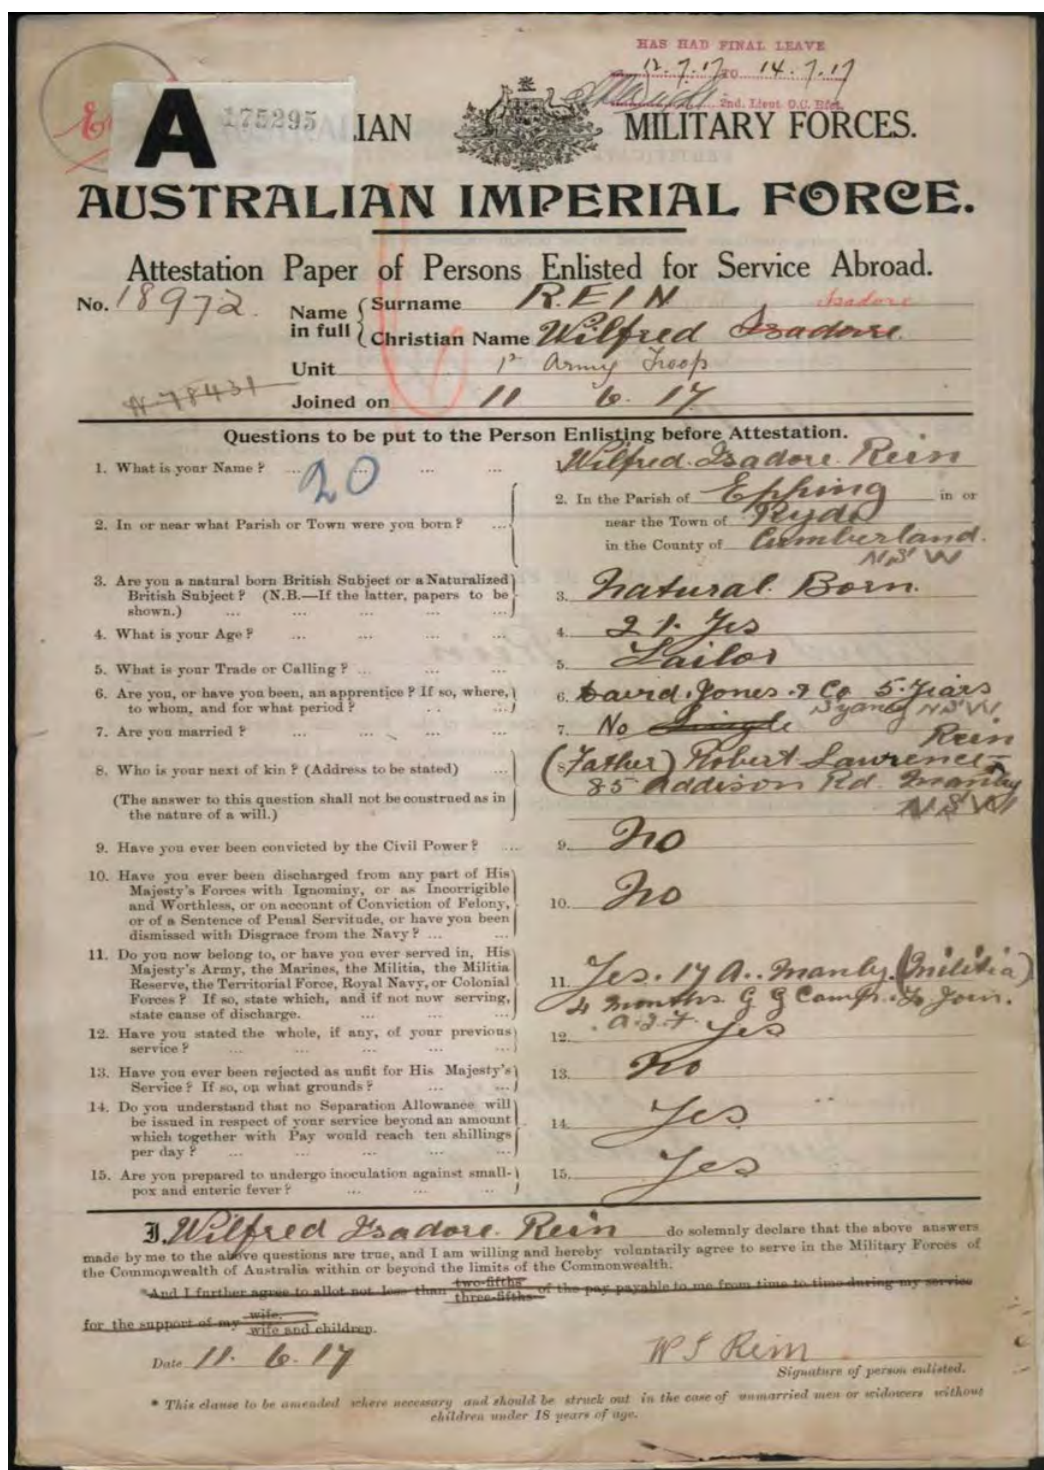 HAS HAD FINAL LEAVE
12.7.17 TO 14.7.17
2nd. Lieut. O.C.
A 175295 LIAN MILITARY FORCES.
AUSTRALIAN IMPERIAL FORCE.
Attestation Paper of Persons Enlisted for Service Abroad.
No. 18972. Name in full Surname REIN
Isadore
Christian Name Wilfred Isadore
Unit Army Troop
N 78431
Joined on 11 6. 17
Questions to be put to the Person Enlisting before Attestation.
1. What is your Name? ... ... ... ... 1. Wilfred Isadore Rein
20
2. In or near what Parish or Town were you born? ... 2. In the Parish of Epping in or
near the Town of Ryde
in the County of Cumberland.
N S W
3. Are you a natural born British Subject or a Naturalized
British Subject? (N.B.—If the latter, papers to be
shown.) ... ... ... ... 3. Natural Born.
4. What is your Age? ... ... ... ... 4. 21
5. What is your Trade or Calling? ... ... ... 5. Tailor
6. Are you, or have you been, an apprentice? If so, where,
to whom, and for what period? 6. David Jones & Co 5 Years
Sydney NSW
7. Are you married? ... ... ... ... 7. No Single
8. Who is your next of kin? (Address to be stated) ... 8. (Father) Robert Lawrence Rein
85 Addison Rd. Manly
NSW
(The answer to this question shall not be construed as in
the nature of a will.)
9. Have you ever been convicted by the Civil Power? ... 9. No
10. Have you ever been discharged from any part of His
Majesty's Forces with Ignominy, or as Incorrigible
and Worthless, or on account of Conviction of Felony,
or of a Sentence of Penal Servitude, or have you been
dismissed with Disgrace from the Navy? ... ... 10. No
11. Do you now belong to, or have you ever served in, His
Majesty's Army, the Marines, the Militia, the Militia
Reserve, the Territorial Force, Royal Navy, or Colonial
Forces? If so, state which, and if not now serving,
state cause of discharge. ... ... ... ... 11. Yes. 17 A.. Manly. (Militia)
4 months G G Camp. To Join.
A.I.F.
12. Have you stated the whole, if any, of your previous
service? ... ... ... ... ... 12. Yes
13. Have you ever been rejected as unfit for His Majesty's
Service? If so, on what grounds? ... ... 13. No
14. Do you understand that no Separation Allowance will
be issued in respect of your service beyond an amount
which together with Pay would reach ten shillings
per day? ... ... ... ... ... 14. Yes
15. Are you prepared to undergo inoculation against small-
pox and enteric fever? ... ... ... 15. Yes
I, Wilfred Isadore Rein do solemnly declare that the above answers
made by me to the above questions are true, and I am willing and hereby voluntarily agree to serve in the Military Forces of
the Commonwealth of Australia within or beyond the limits of the Commonwealth.
*And I further agree to allot not less than two-fifths three-fifths of the pay payable to me from time to time during my service
for the support of my wife. wife and children.
Date 11. 6. 17
W I Rein
Signature of person enlisted.
* This clause to be amended where necessary and should be struck out in the case of unmarried men or widowers without
children under 18 years of age.